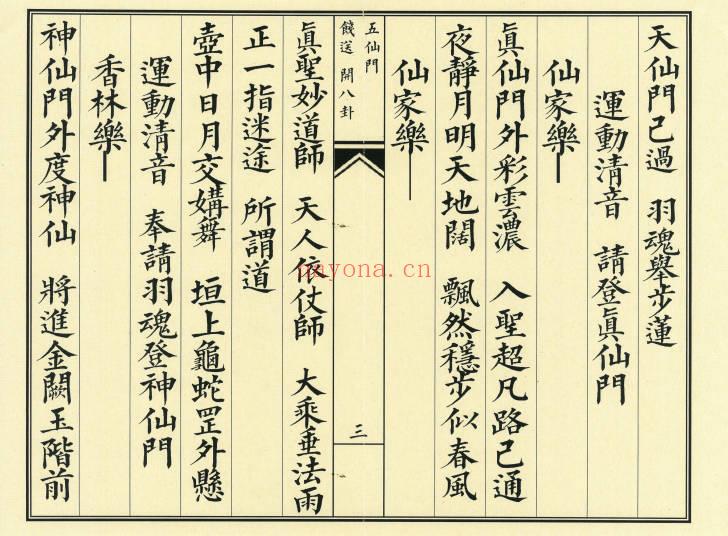 天仙門已過　羽魂舉步蓮
運動清音　請登眞仙門
仙家樂｜
眞仙門外彩雲濃　入聖超凡路已通
夜靜月明天地闊　飄然穩步似春風
仙家樂｜
五仙門
餞送　開八卦
三
眞聖妙道師　天人依仗師　大乘垂法雨
正一指迷途　所謂道
壺中日月交媾舞　垣上龜蛇罡外懸
運動清音　奉請羽魂登神仙門
香林樂｜
神仙門外度神仙　將進金闕玉階前
nayona.cn